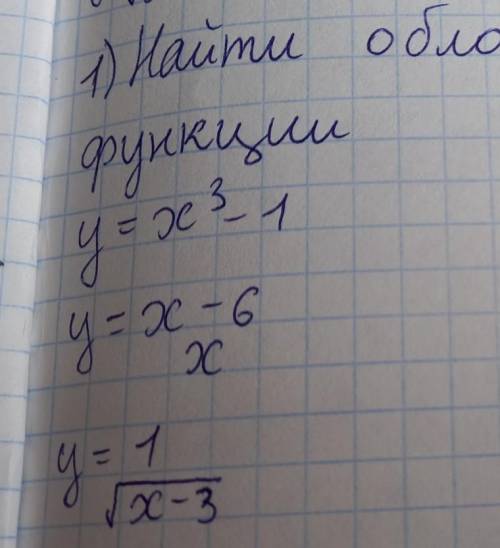 1) Найти обло
функции
y = x³ - 1
y = x - 6
x
y = 1
√x-3